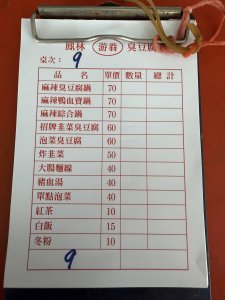 鳳林 游翁 臭豆腐
桌次: 9
品 名 單價 數量 總計
麻辣臭豆腐鍋 70
麻辣鴨血寶鍋 70
麻辣綜合鍋 70
招牌韭菜臭豆腐 60
泡菜臭豆腐 60
炸韭菜 50
大腸麵線 40
豬血湯 40
單點泡菜 40
紅茶 10
白飯 15
冬粉 10
9